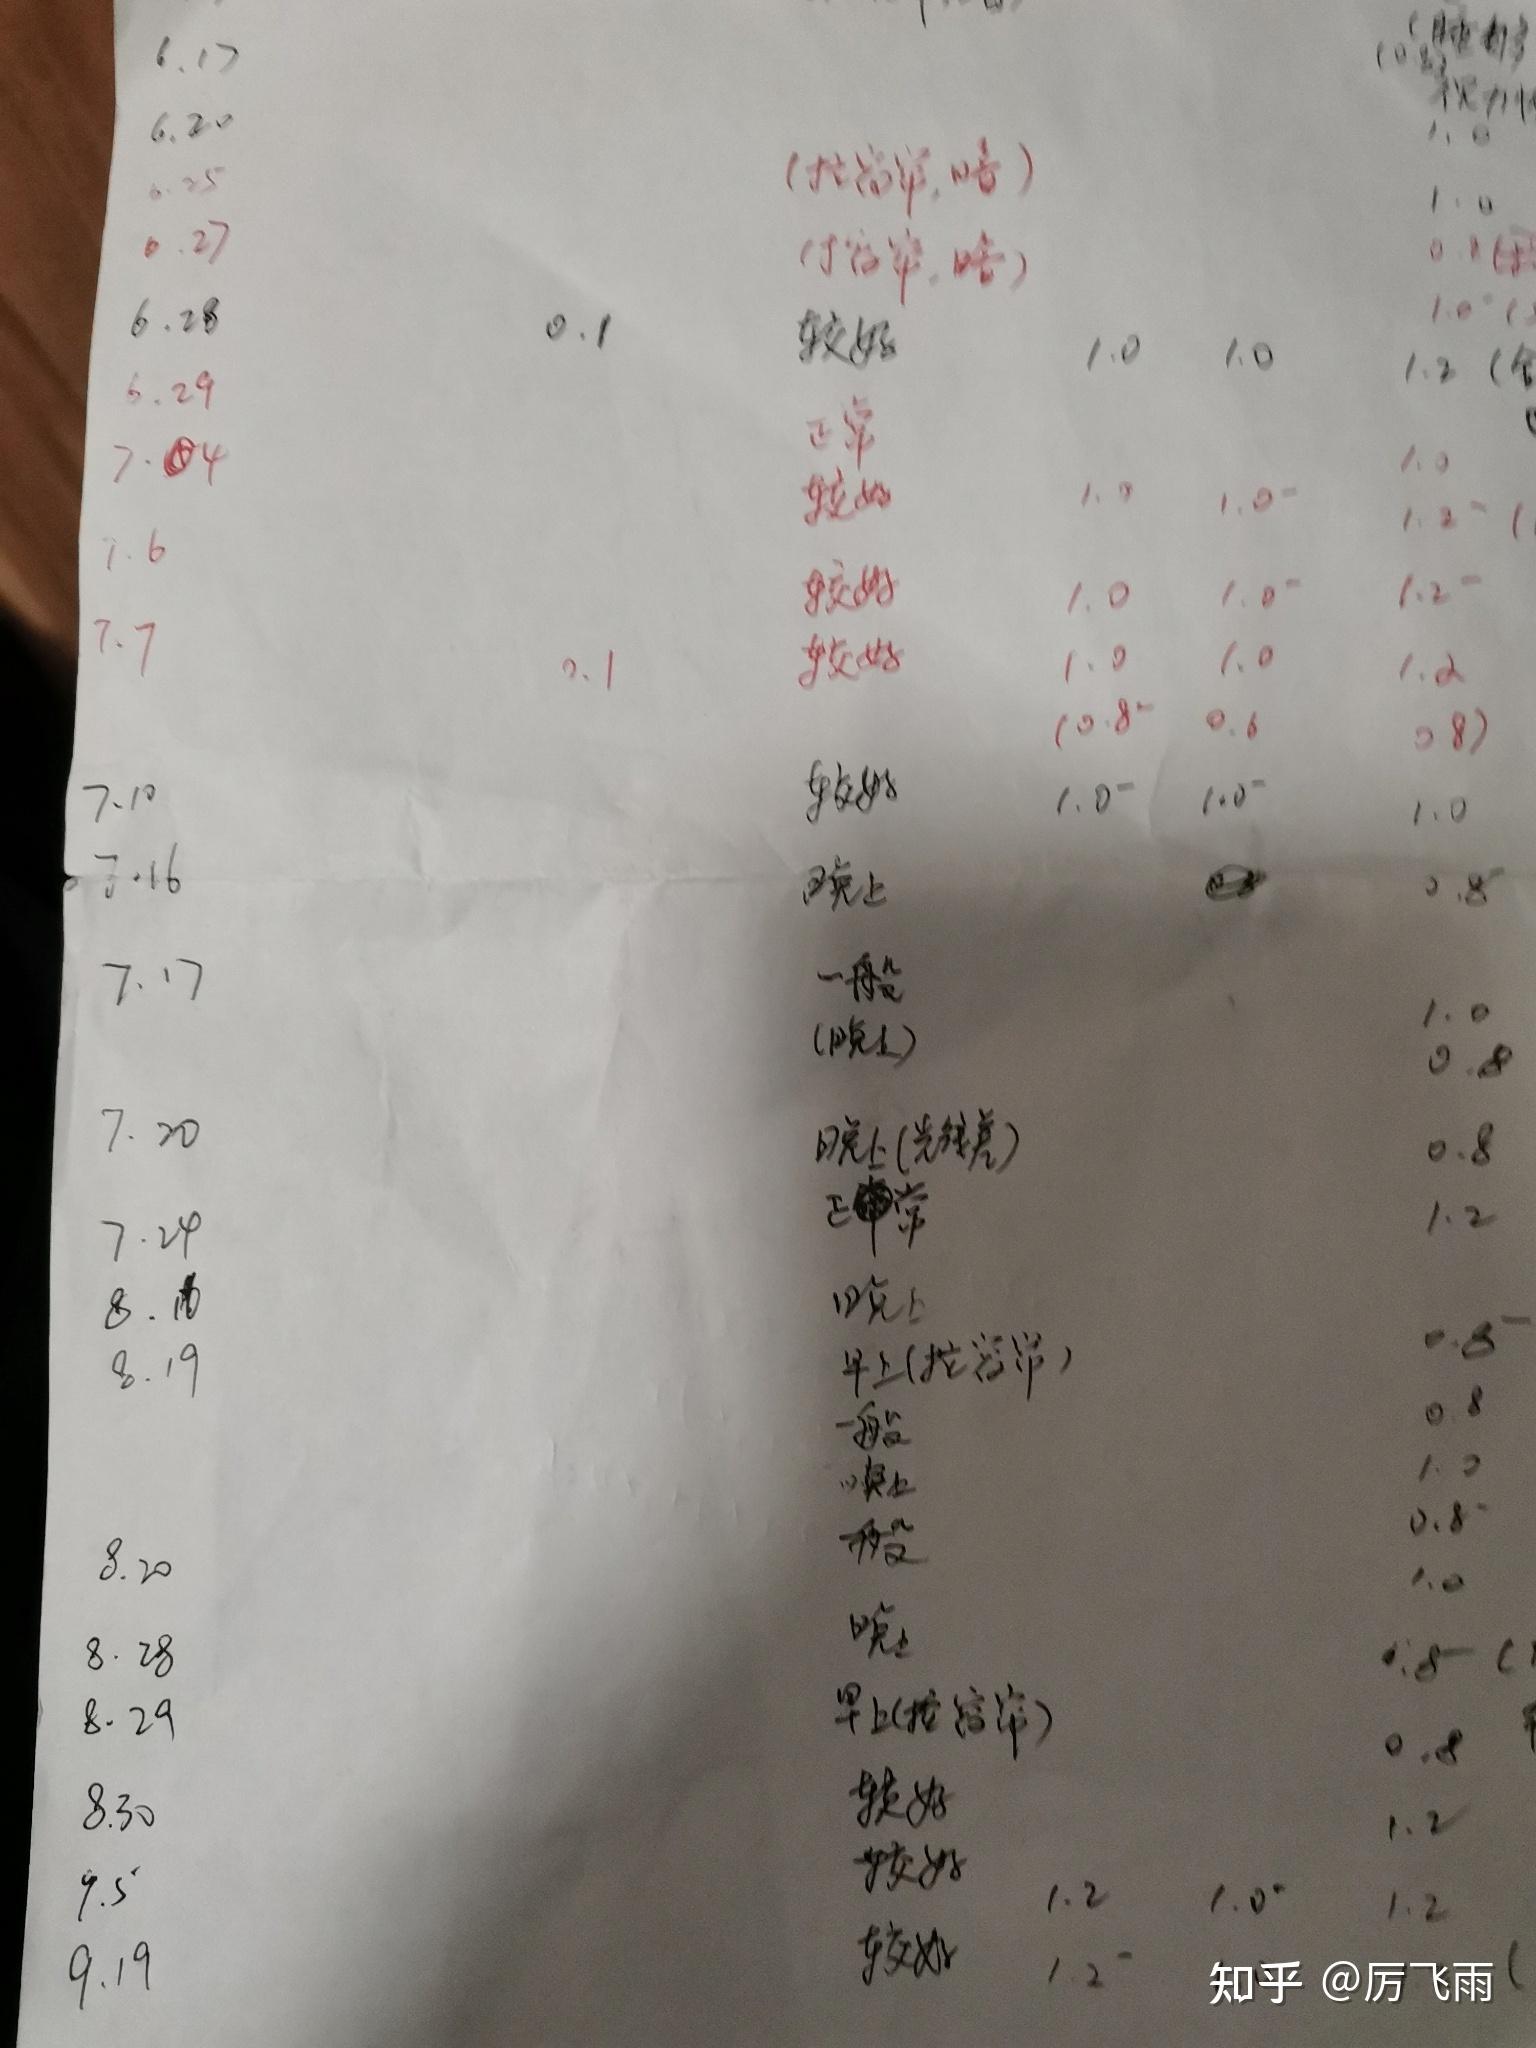 6.17
6.20 1.0
6.25 (拉窗帘,暗) 1.0
6.27 (拉窗帘,暗) 0.8
1.0⁻
6.28 0.1 较好 1.0 1.0 1.2
6.29 正常 1.0
7.4 较好 1.0 1.0⁻ 1.2⁻
7.6 较好 1.0 1.0⁻ 1.2⁻
7.7 0.1 较好 1.0 1.0 1.2
(0.8⁻ 0.6 0.8)
7.10 较好 1.0⁻ 1.0⁻ 1.0
7.16 晚上 0.8⁻
7.17 一般 1.0
(晚上) 0.8
7.20 晚上(光线差) 0.8
7.24 正常 1.2
晚上 0.8⁻
8.19 早上(拉窗帘) 0.8
一般 1.0
晚上 0.8⁻
8.20 一般 1.0
8.28 晚上 0.8⁻
8.29 早上(拉窗帘) 0.8
8.30 较好 1.2
9.5 较好 1.2 1.0⁻ 1.2
9.19 较好 1.2⁻
知乎 @厉飞雨